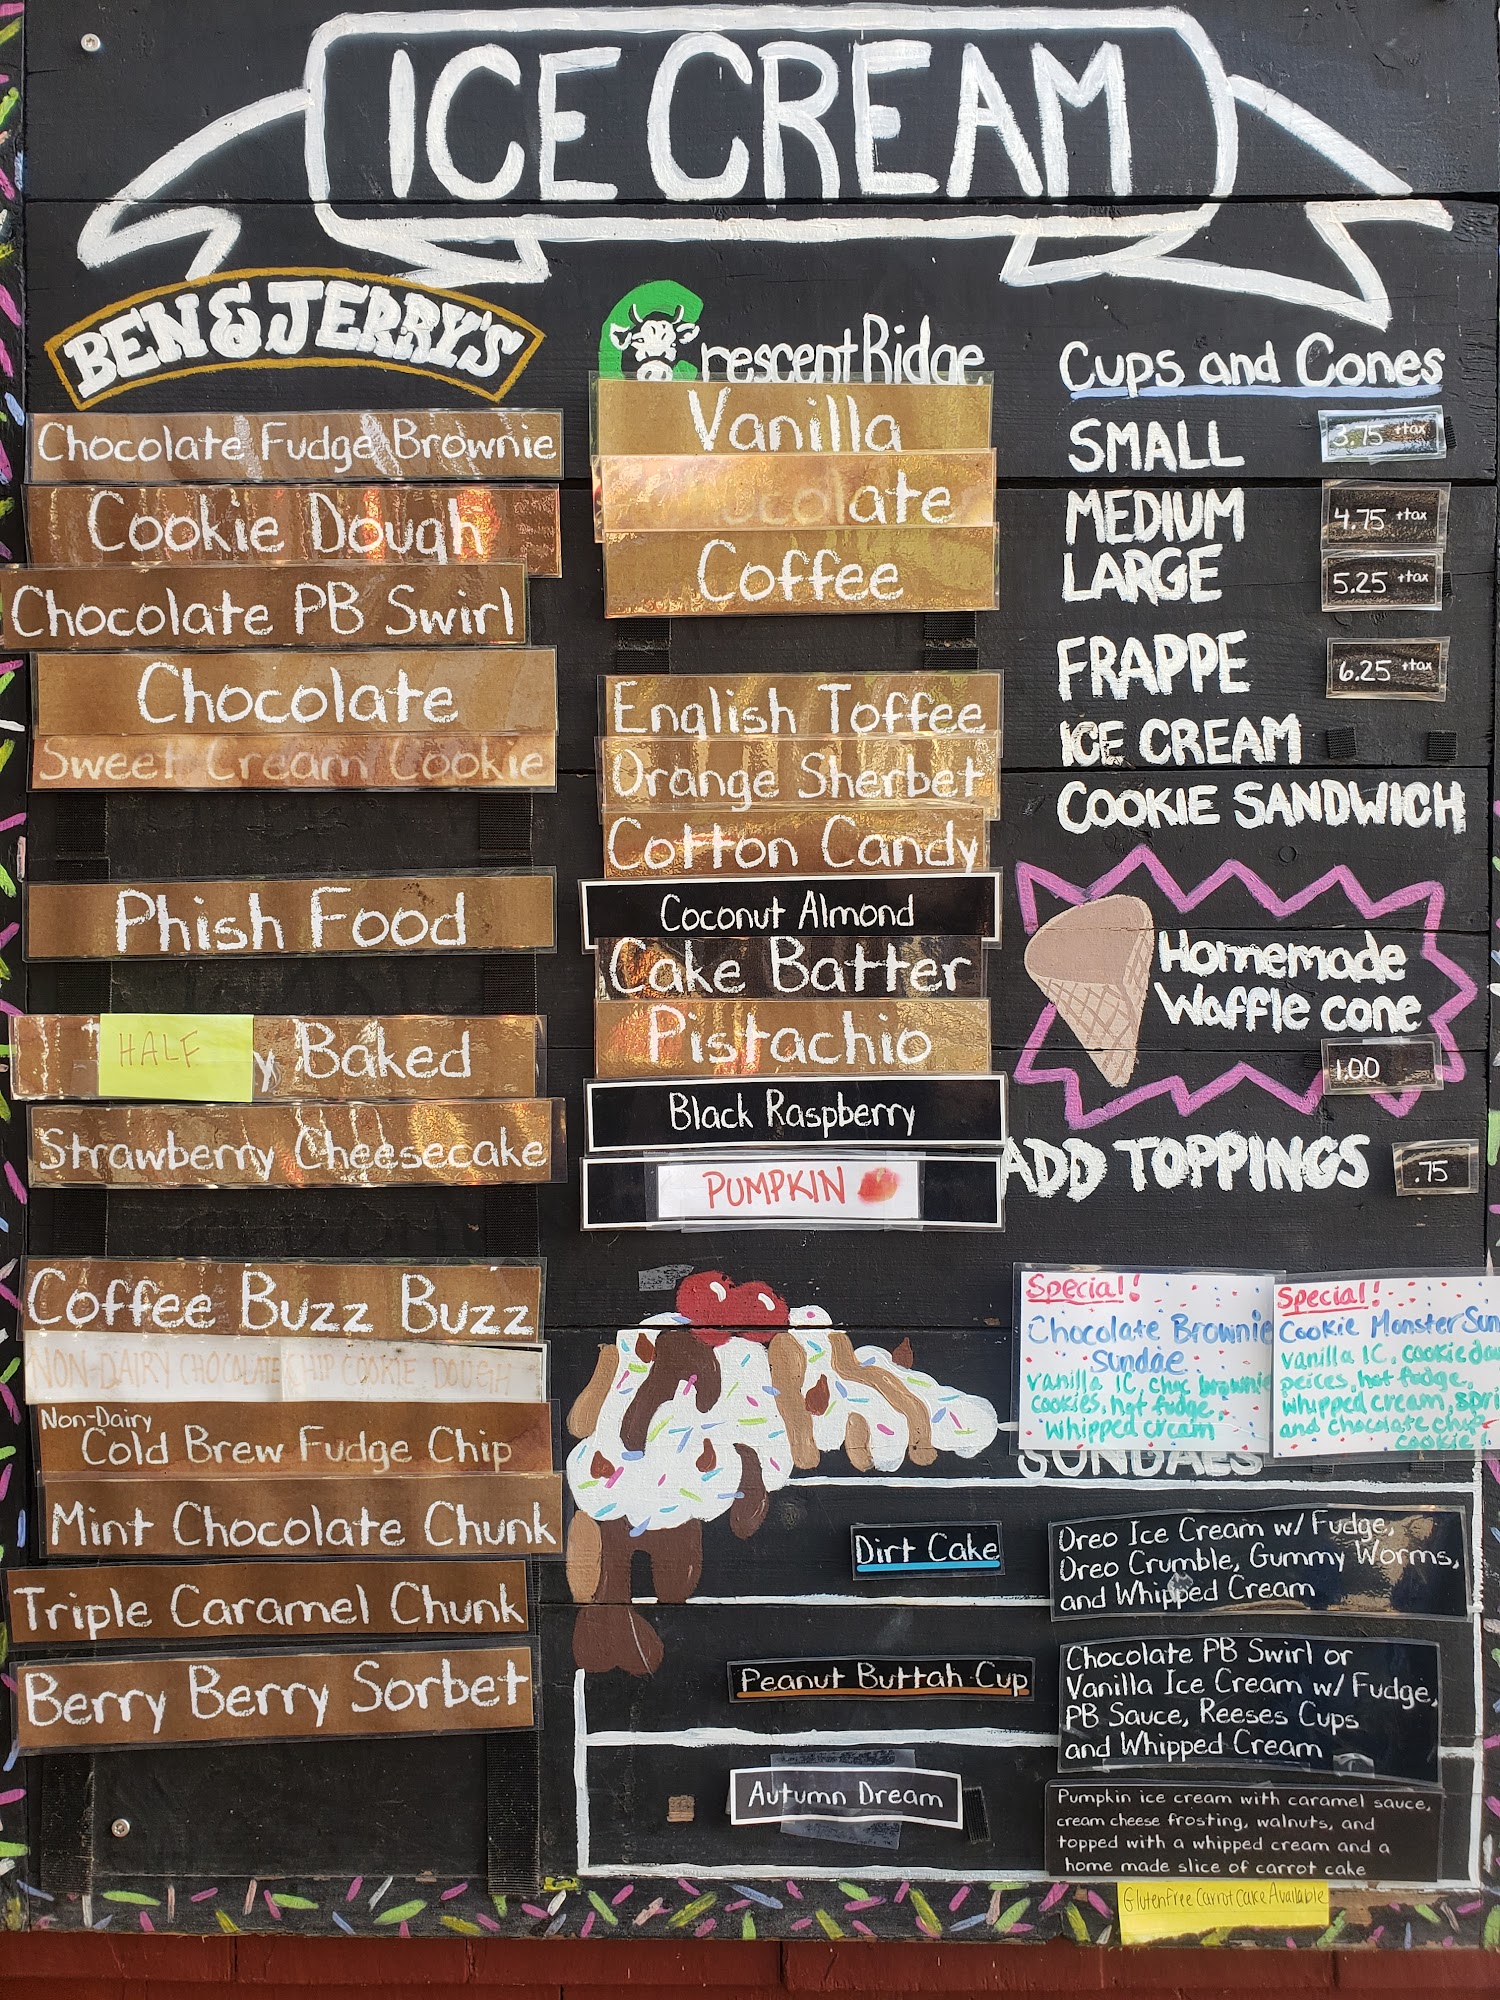 ICE CREAM
BEN & JERRY'S
Chocolate Fudge Brownie
Cookie Dough
Chocolate PB Swirl
Chocolate
Sweet Cream Cookie
Phish Food
HALF y Baked
Strawberry Cheesecake
Coffee Buzz Buzz
NON-DAIRY CHOCOLATE CHIP COOKIE DOUGH
Non-Dairy
Cold Brew Fudge Chip
Mint Chocolate Chunk
Triple Caramel Chunk
Berry Berry Sorbet
Crescent Ridge
Vanilla
Chocolate
Coffee
English Toffee
Orange Sherbet
Cotton Candy
Coconut Almond
Cake Batter
Pistachio
Black Raspberry
PUMPKIN
Cups and Cones
SMALL 3.75 +tax
MEDIUM 4.75 +tax
LARGE 5.25 +tax
FRAPPE 6.25 +tax
ICE CREAM
COOKIE SANDWICH
Homemade
Waffle cone
1.00
ADD TOPPINGS .75
Special!
Chocolate Brownie
Sundae
vanilla IC, choc brownie
cookies, hot fudge,
whipped cream
Special!
Cookie Monster Sun
vanilla IC, cookie dou
peices, hot fudge,
whipped cream, spri
and chocolate chip
cookie!
SUNDAES
Dirt Cake
Oreo Ice Cream w/ Fudge,
Oreo Crumble, Gummy Worms,
and Whipped Cream
Peanut Buttah Cup
Chocolate PB Swirl or
Vanilla Ice Cream w/ Fudge,
PB Sauce, Reeses Cups
and Whipped Cream
Autumn Dream
Pumpkin ice cream with caramel sauce,
cream cheese frosting, walnuts, and
topped with a whipped cream and a
home made slice of carrot cake
Gluten Free Carrot Cake Available